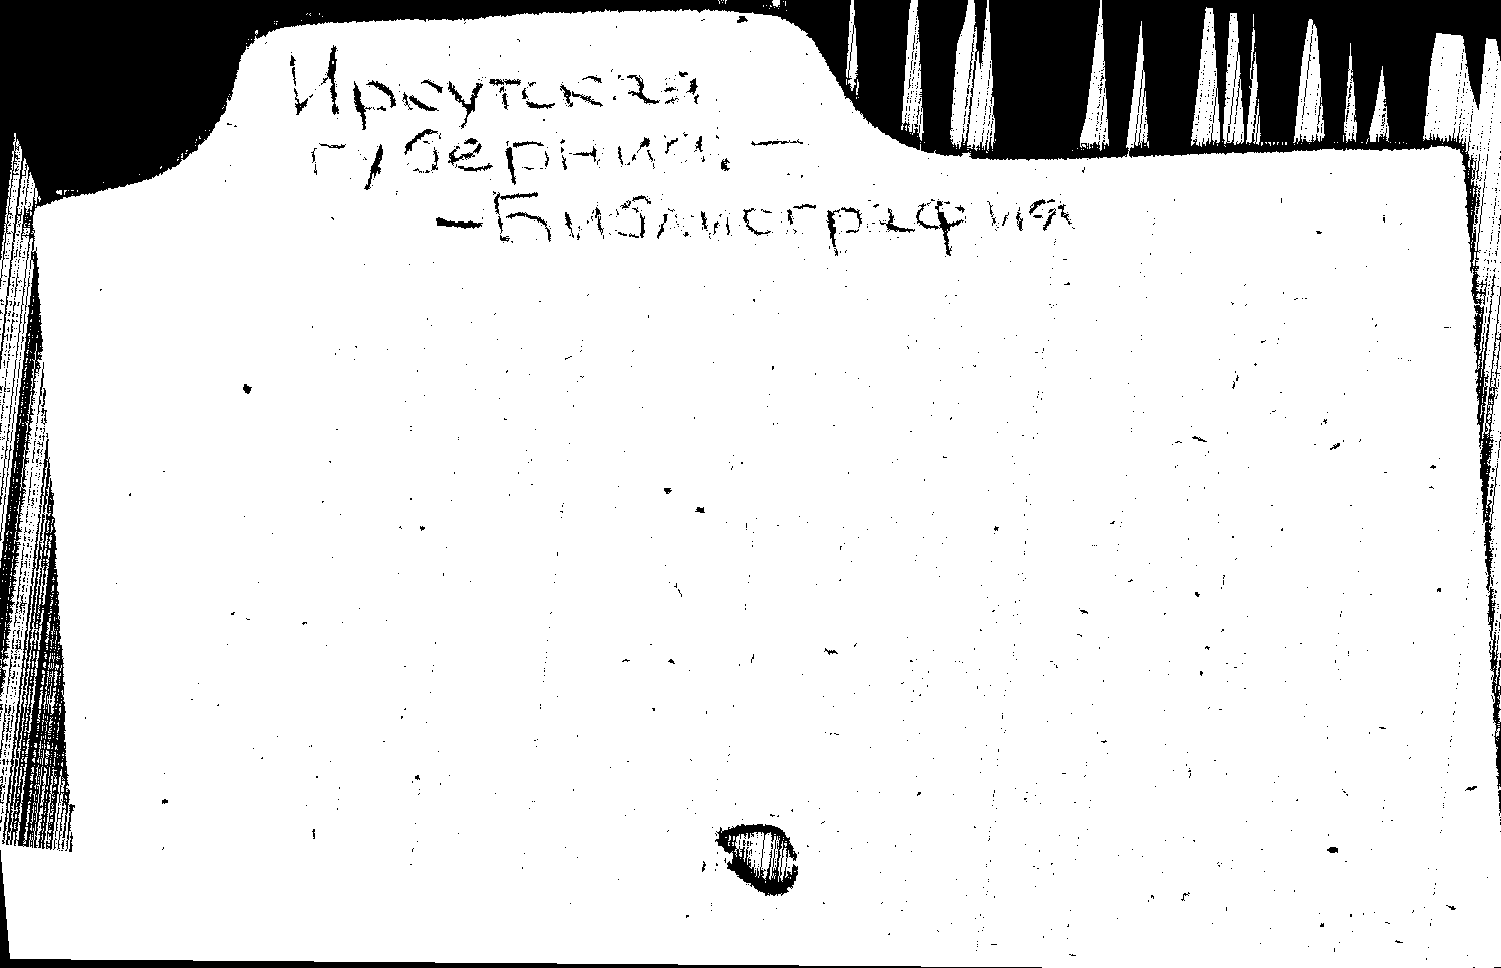 Иркутская
губерния. —
— Библиография